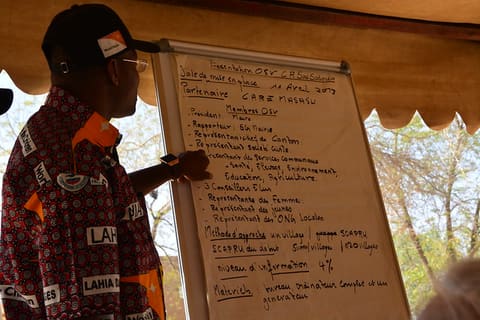 Présentation OSV C.R San Sabaden
Date de mise en place 11 Avril 2017
Partenaire CARE MASASU
Membres OSV
President Maire
- Rapporteur / SG Mairie
- Représentant chefs de Canton
- Représentant Société Civile
- Représentant des Services communaux
- Santé, Elevage, Environnement,
Education, Agriculture.
- 3 Conseillers Elus
- Représentante des Femmes
- Représentant des jeunes
- Représentant des ONG Locales
Méthode d'approche un village / SCAPRU
SCAPRU villages / 120 villages
niveau d'information 4%
Materiels bureau ordinateur complet et un
generateur
LAHIA
LAHIA